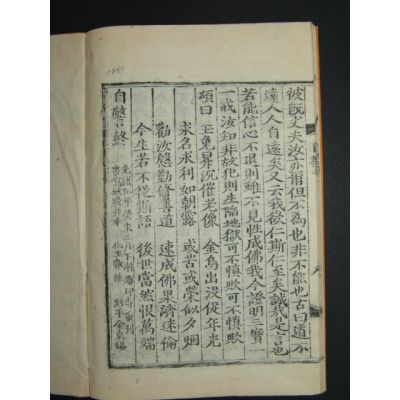 彼旣丈夫汝亦爾但不為也非不能也古曰道不
遠人人自遠矣又云我欲仁斯仁至矣誠哉是言也
若能信心不退則誰不見性成佛我今證明三寶一
一戒汝知非故犯則生陷地獄可不慎歟可不慎歟
頌曰 玉兔昇沉催老像 金烏出沒促年光
求名求利如朝露 或苦或榮似夕烟
勸汝慇懃修善道 速成佛果濟迷倫
今生若不從斯語 後世當然恨萬端
自警終
癸未三月下
重刊
化主
刻手金